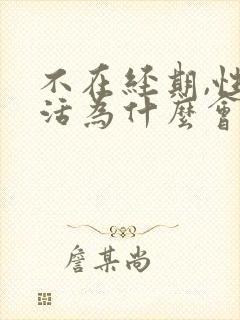 不在經期,性
活為什麼會
詹某尚